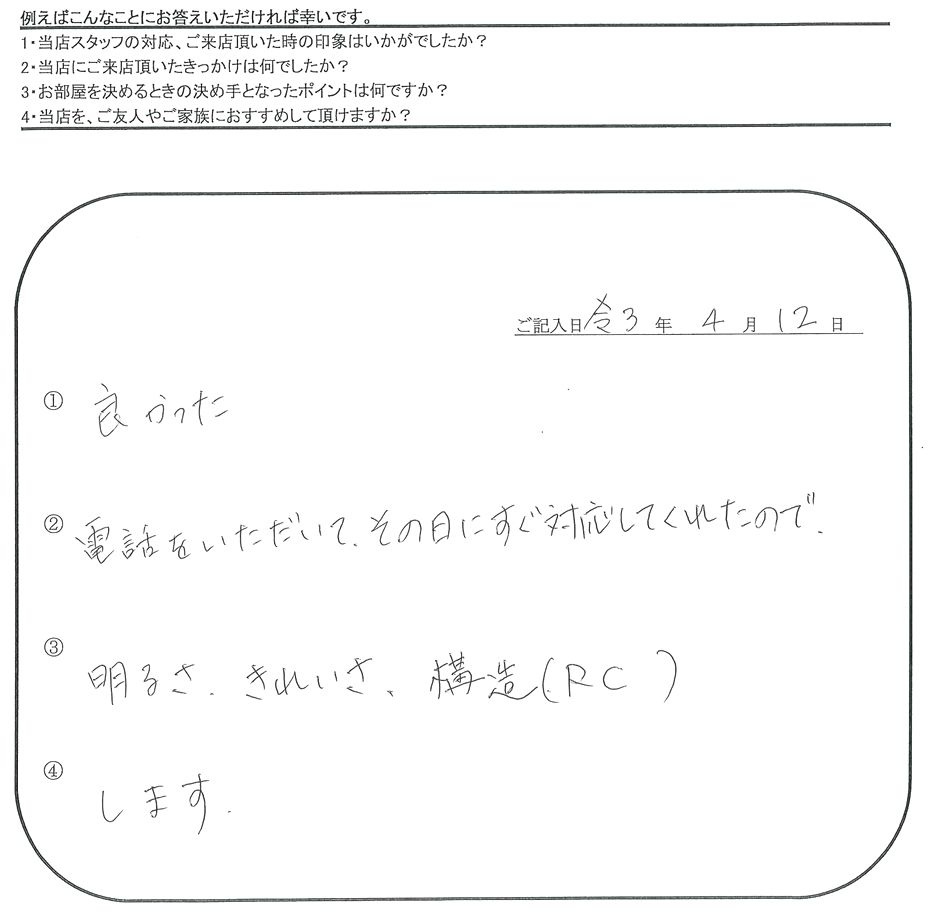 例えばこんなことにお答えいただければ幸いです。
1・当店スタッフの対応、ご来店頂いた時の印象はいかがでしたか？
2・当店にご来店頂いたきっかけは何でしたか？
3・お部屋を決めるときの決め手となったポイントは何ですか？
4・当店を、ご友人やご家族におすすめして頂けますか？
ご記入日 令3 年 4 月 12 日
① 良かった
② 電話をいただいて、その日にすぐ対応してくれたので、
③ 明るさ、きれいさ、構造(RC)
④ します。